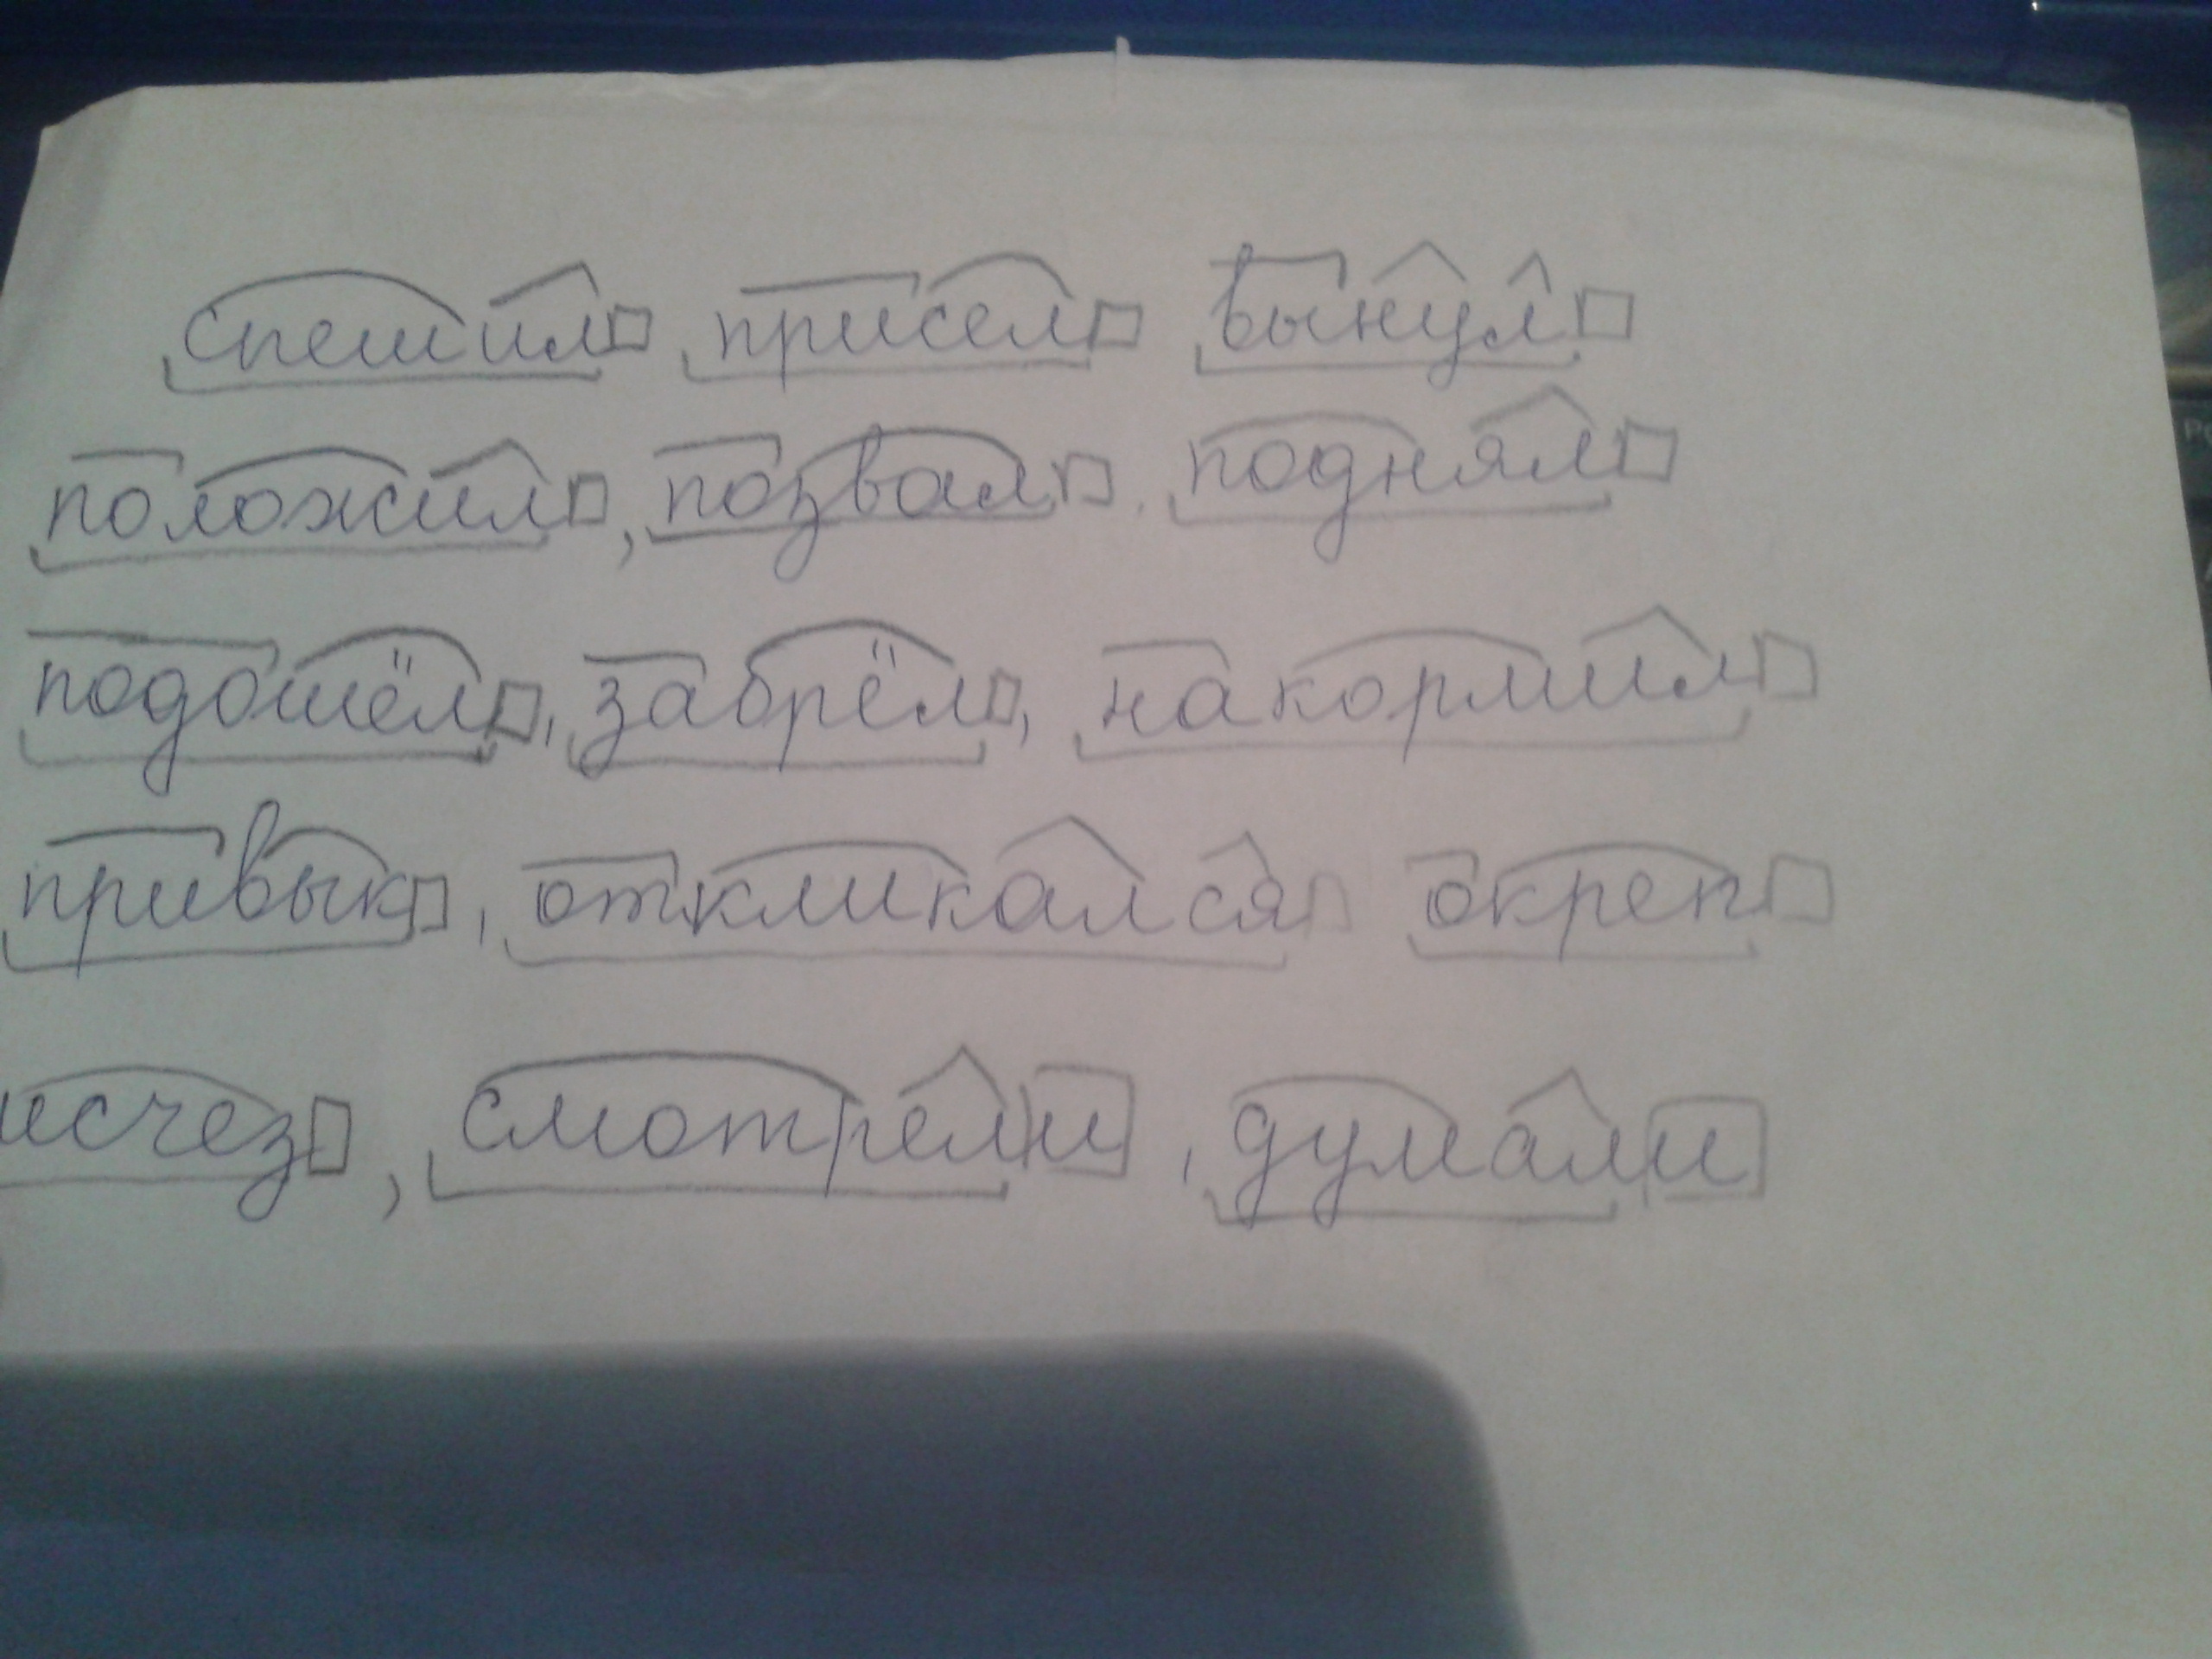 спешил присел вынул
положил, позвал. поднял
подошёл, забрёл, накормил
привык, откликался окреп
исчез, смотрели, думали